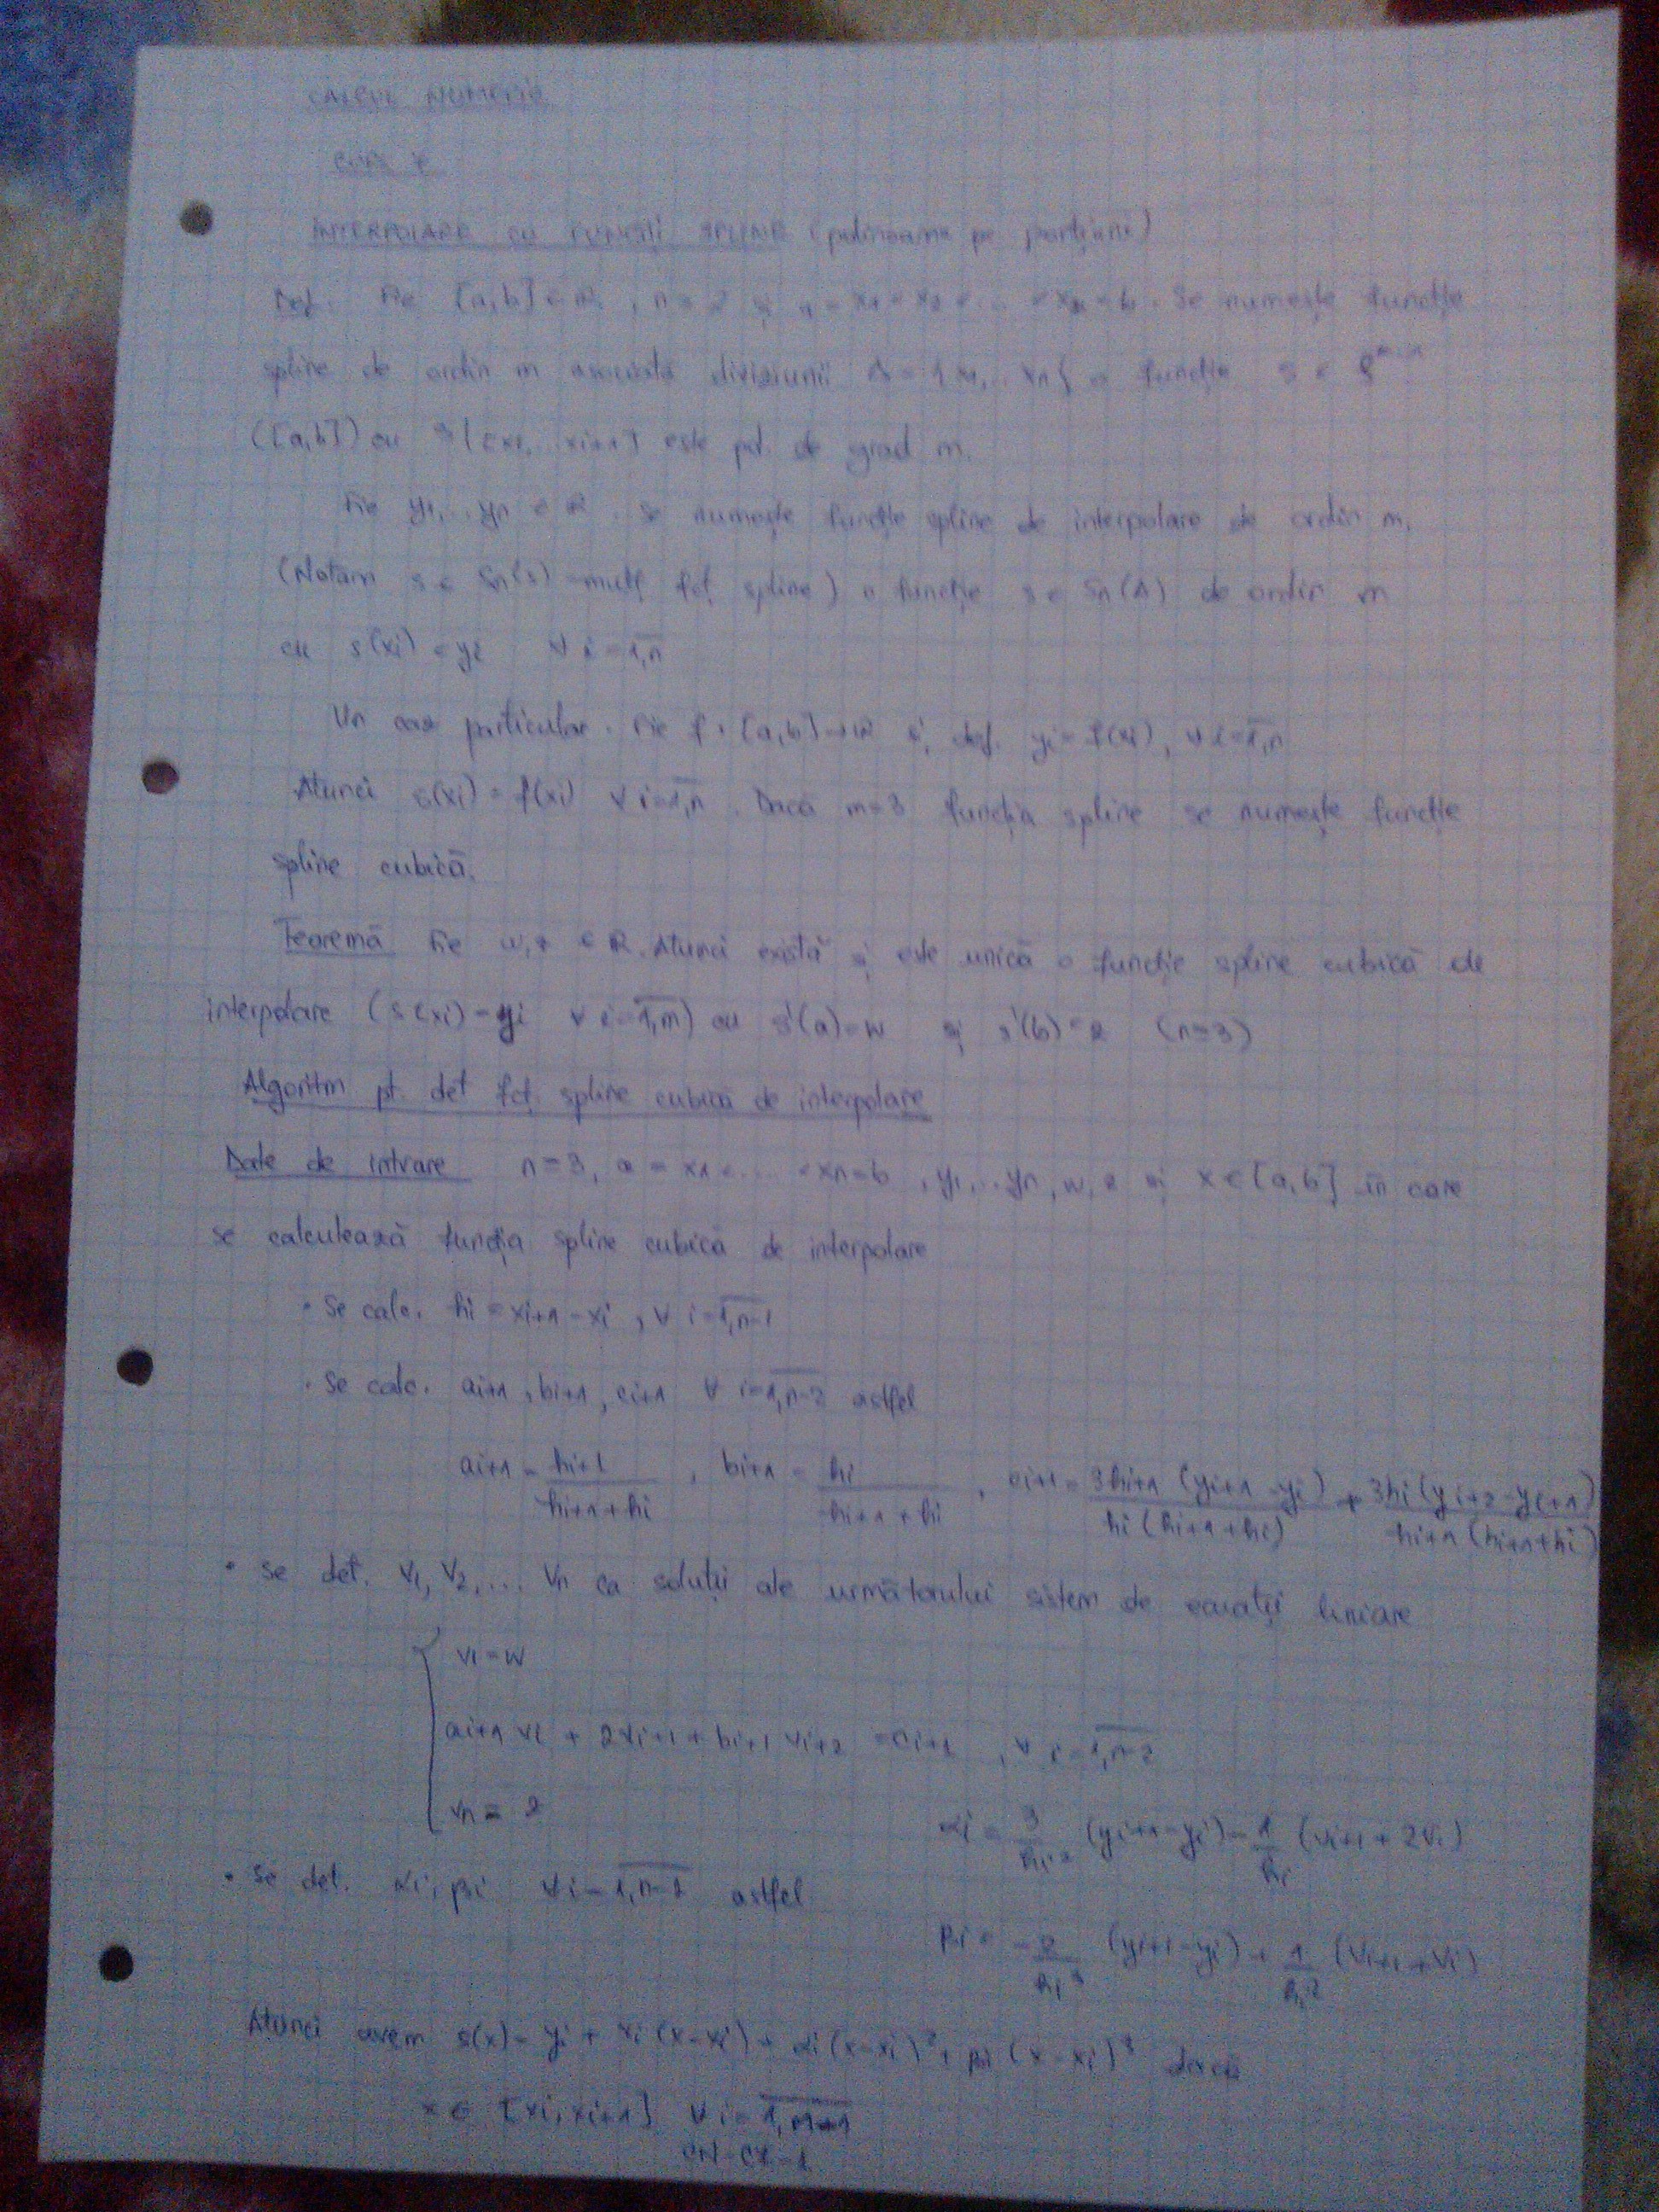 CALCUL NUMERIC
CURS
INTERPOLARE CU FUNCȚII SPLINE (polinoame pe porțiuni)
Def. Fie [a,b] ⊂ R, n ≥ 2 și a = x1 < x2 < ... < xn = b. Se numește funcție
spline de ordin m asociată diviziunii Δ = {x1,.. xn} o funcție s ∈
([a,b]) cu s|[xi,...xi+1] este pol. de grad m.
Fie y1,...yn ∈ R. Se numește funcție spline de interpolare de ordin m.
(Notam s ∈ = mulț. fcț. spline) o funcție s ∈ Sn(Δ) de ordin m
cu s(xi) = yi ∀ i = 1,n
Un caz particular. Fie f: [a,b]→R și def. yi = f(xi), ∀ i=1,n
Atunci s(xi) = f(xi) ∀ i=1,n. Dacă m=3 funcția spline se numește funcție
spline cubică.
Teoremă Fie w,z ∈ R. Atunci există și este unică o funcție spline cubică de
interpolare (s(xi)=yi ∀ i=1,m) cu s'(a)=w și s'(b)=z (n≥3)
Algoritm pt. det fcț. spline cubică de interpolare
Date de intrare n≥3, a = x1 < ... < xn=b, y1,...yn, w, z și x∈[a,b] în care
se calculează funcția spline cubică de interpolare
• Se calc. hi = xi+1 - xi, ∀ i=1,n-1
• Se calc. ai+1, bi+1, ci+1 ∀ i=1,n-2 astfel
ai+1 = hi+1 / (hi+1+hi), bi+1 = hi / (hi+1+hi), ci+1 = 3hi+1 (yi+1-yi) / hi(hi+1+hi) + 3hi(yi+2-yi+1) / hi+1(hi+1+hi)
• se det. v1, v2,... vn ca soluții ale următorului sistem de ecuații liniare
v1=w
ai+1 vi + 2vi+1 + bi+1 vi+2 = ci+1, ∀ i=1,n-2
vn = z
αi = 3/hi² (yi+1-yi) - 1/hi (vi+1 + 2vi)
• Se det. αi, βi ∀ i=1,n-1 astfel
βi = -2/hi³ (yi+1-yi) + 1/hi² (vi+1+vi)
Atunci avem s(x) = yi + vi(x-xi) + αi(x-xi)² + βi(x-xi)³ dacă
x ∈ [xi, xi+1] ∀ i=1,n-1